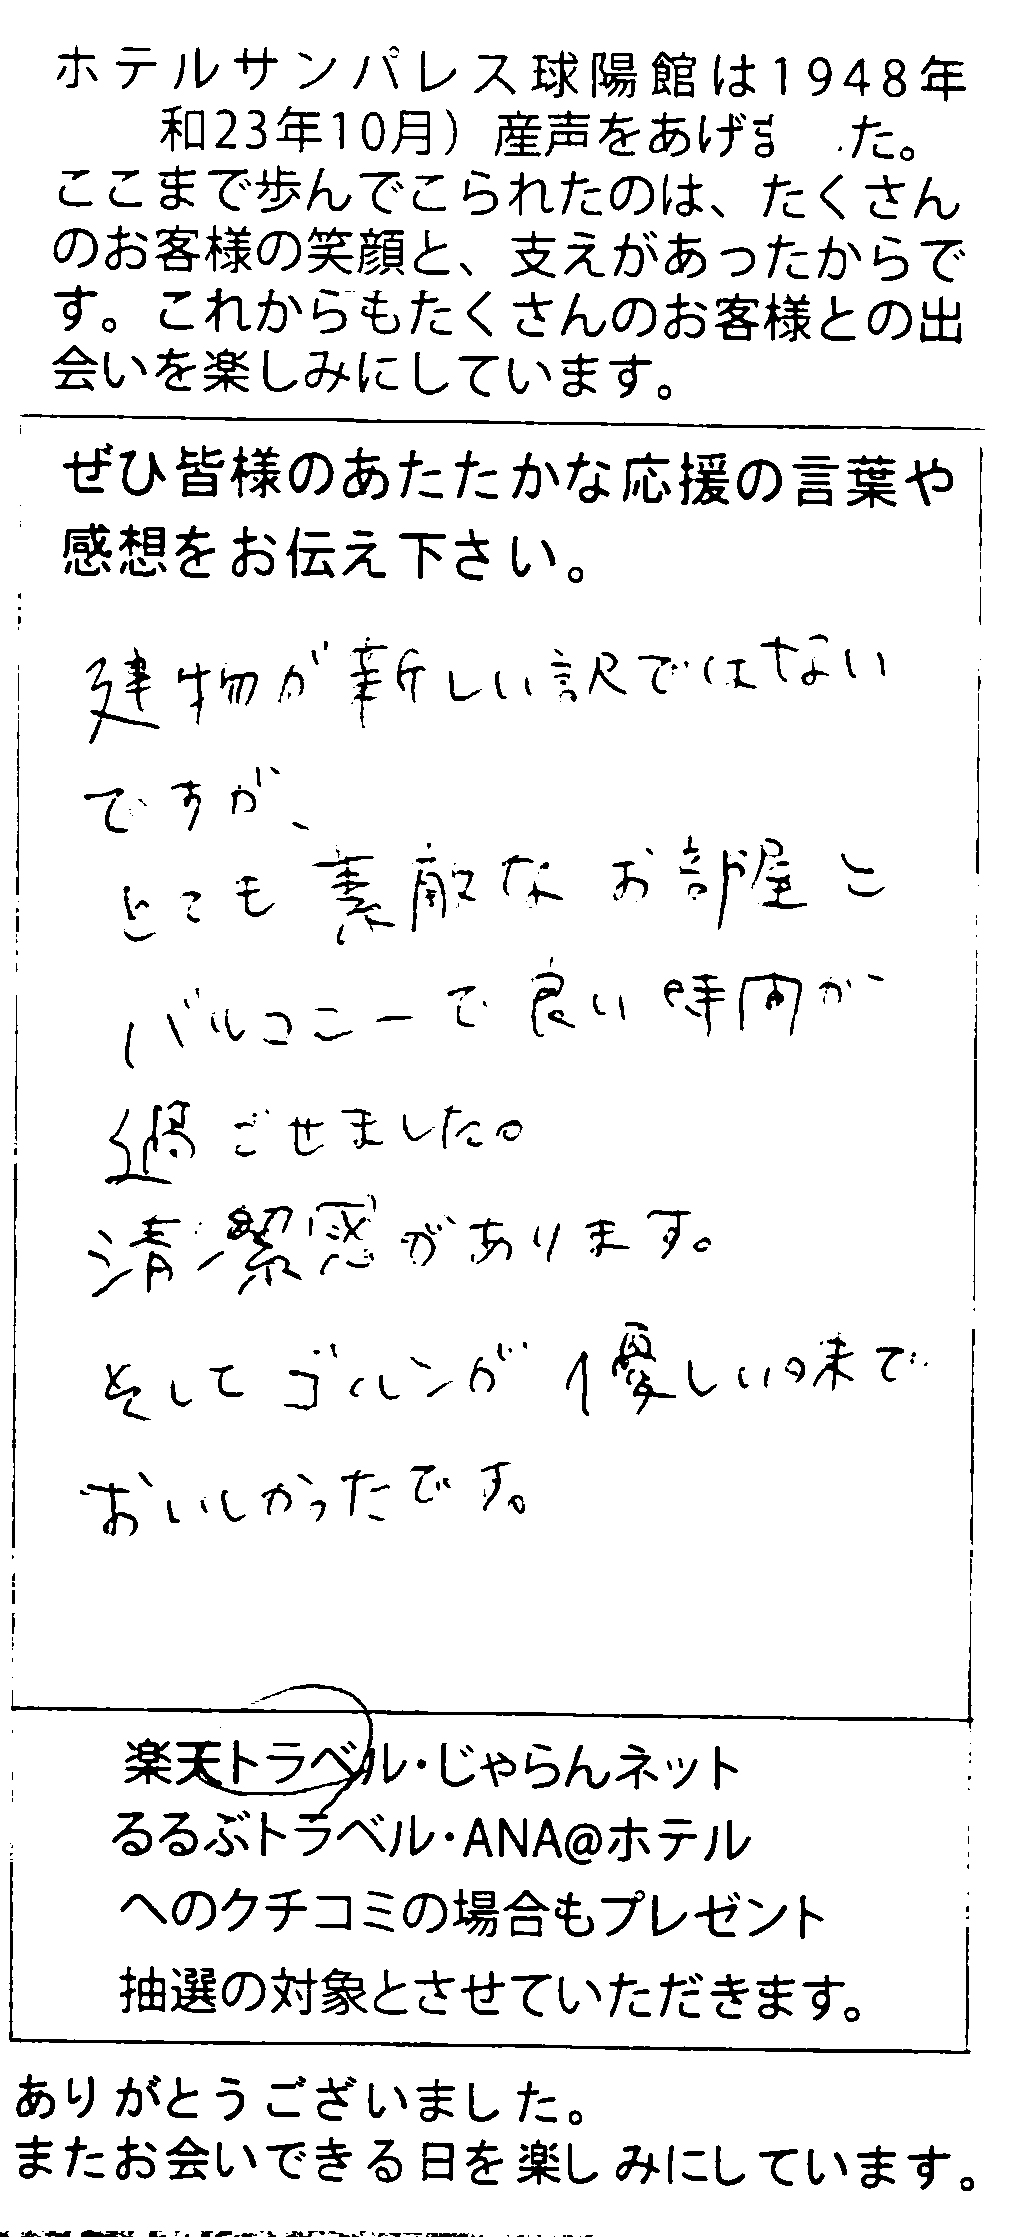 ホテルサンパレス球陽館は1948年
和23年10月）産声をあげま た。
ここまで歩んでこられたのは、たくさん
のお客様の笑顔と、支えがあったからで
す。これからもたくさんのお客様との出
会いを楽しみにしています。
ぜひ皆様のあたたかな応援の言葉や
感想をお伝え下さい。
建物が新しい訳ではない
ですが、
とても素敵なお部屋と
バルコニーで良い時間が
過ごせました。
清潔感があります。
そしてゴルンが優しい味で
おいしかったです。
楽天トラベル・じゃらんネット
るるぶトラベル・ANA@ホテル
へのクチコミの場合もプレゼント
抽選の対象とさせていただきます。
ありがとうございました。
またお会いできる日を楽しみにしています。